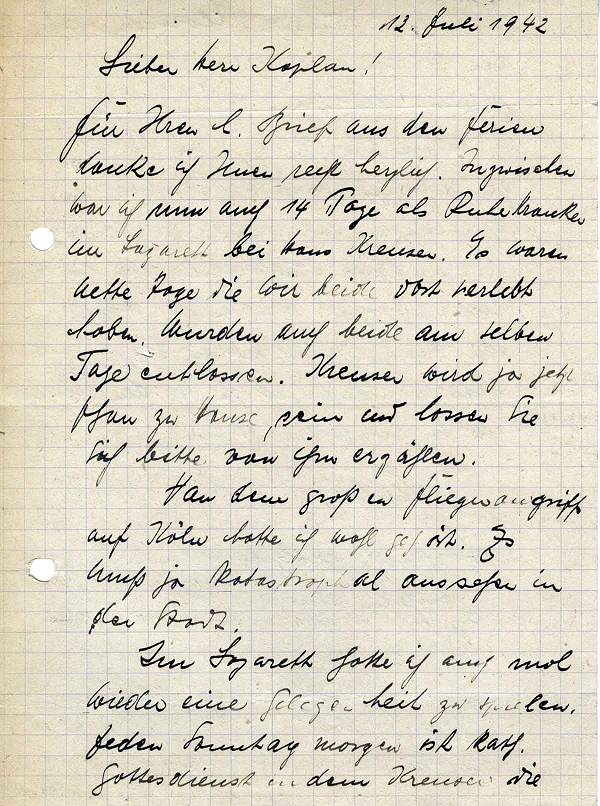 12. Juli 1942
Lieber Herr Kaplan!
für Ihren l. Brief aus den Ferien
danke ich Ihnen recht herzlich. Inzwischen
war ich nun auch 14 Tage als Ruhrkranker
im Lazarett bei Hans Kreuser. Es waren
nette Tage die wir beide dort verlebt
haben. Wurden auch beide am selben
Tage entlassen. Kreuser wird ja jetzt
schon zu Hause sein und lassen Sie
sich bitte von ihm erzählen.
Von dem großen Fliegerangriff
auf Köln hatte ich wohl gehört. Es
muß ja katastrophal aussehen in
der Stadt.
Im Lazarett hatte ich auch mal
wieder eine Gelegenheit zu spielen.
Jeden Sonntag morgen ist kath.
Gottesdienst in dem Kreuser die